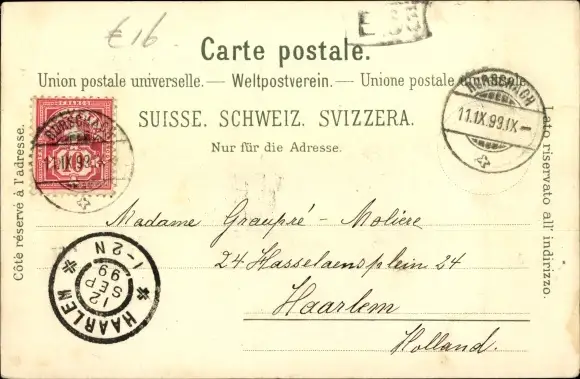 £16
Carte postale.
Union postale universelle. — Weltpostverein. — Unione postale
SUISSE. SCHWEIZ. SVIZZERA.
Nur für die Adresse.
Côté réservé à l'adresse.
Lato riservato all' indirizzo.
FRANCO
RORSCHACH
11.IX.99.
10
RORSCHACH
11.IX.99.IX–
Madame Graupré - Molière
24 Hasselaersplein 24
Haarlem
Holland.
HAARLEM
12
SEP
99
1-2N